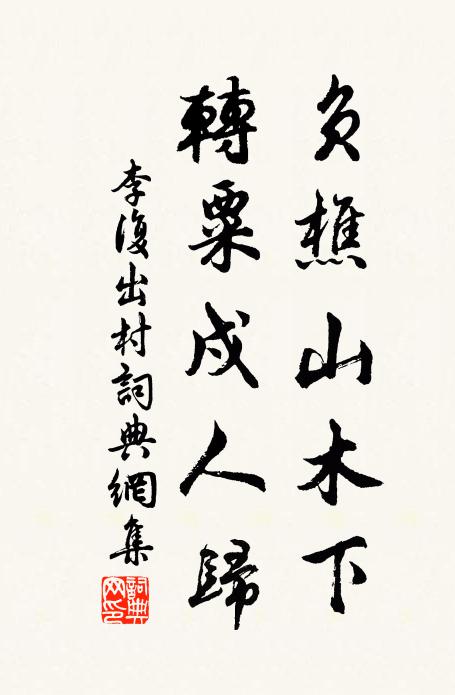 負樵山木下
轉粟戍人歸
李復出村詞典網集
詞典网印